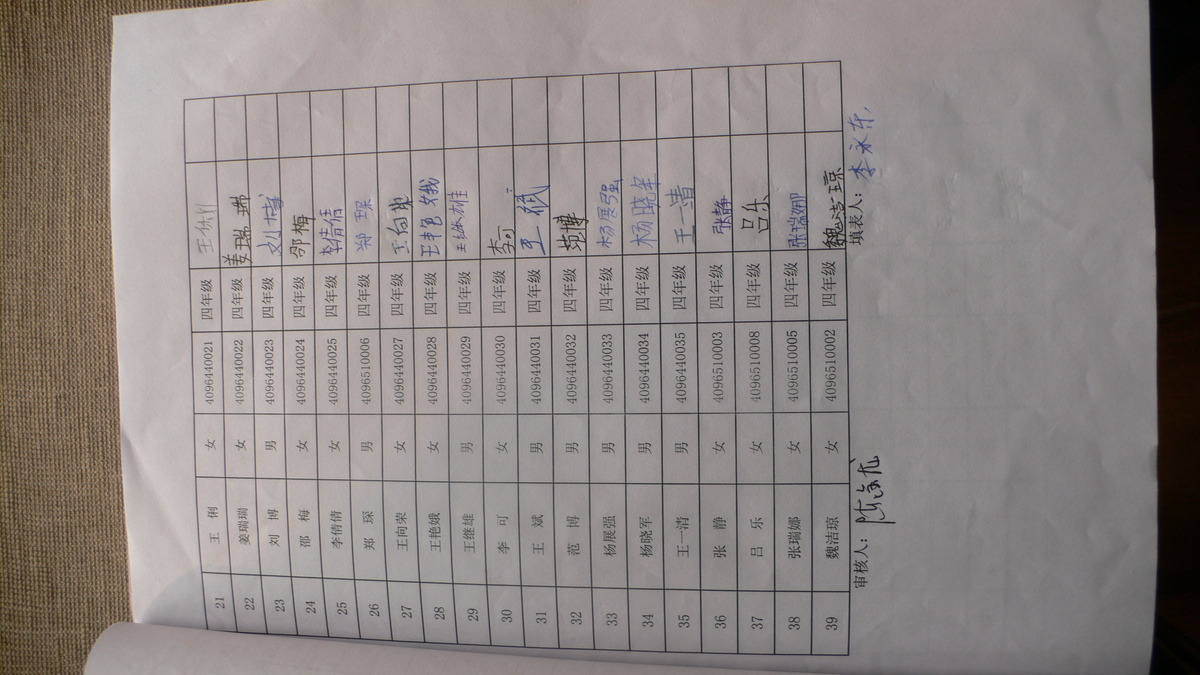 21 王 俐 女 4096440021 四年级 王俐
22 姜瑞瑞 女 4096440022 四年级 姜瑞瑞
23 刘 博 男 4096440023 四年级 刘博
24 邵 梅 女 4096440024 四年级 邵梅
25 李倩倩 女 4096440025 四年级 李倩倩
26 郑 琛 男 4096510006 四年级 郑琛
27 王向荣 女 4096440027 四年级 王向荣
28 王艳娥 女 4096440028 四年级 王艳娥
29 王继雄 男 4096440029 四年级 王继雄
30 李 可 女 4096440030 四年级 李可
31 王 斌 男 4096440031 四年级 王斌
32 范 博 男 4096440032 四年级 范博
33 杨展强 男 4096440033 四年级 杨展强
34 杨晓军 男 4096440034 四年级 杨晓军
35 王一清 男 4096440035 四年级 王一清
36 张 静 女 4096510003 四年级 张静
37 吕 乐 女 4096510008 四年级 吕乐
38 张瑞娜 女 4096510005 四年级 张瑞娜
39 魏洁琼 女 4096510002 四年级 魏洁琼
审核人： 填表人：李永东